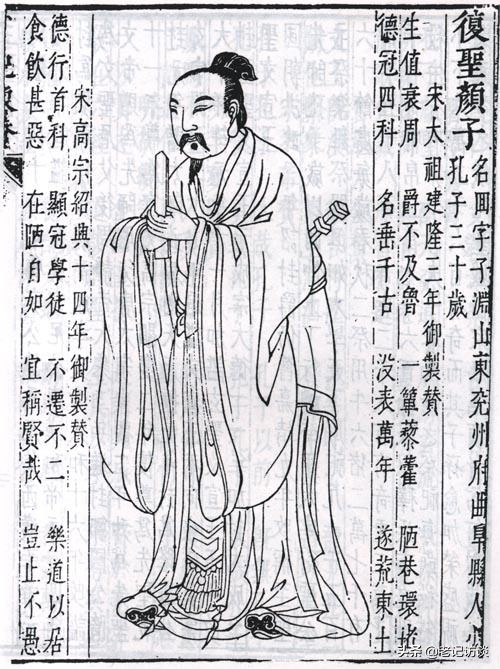 復聖顏子
名囬字子淵山東兗州府曲阜縣人少
孔子三十歲
宋太祖建隆三年御製贊
生值衰周 爵不及魯 一簞藜藿 陋巷環堵
德冠四科 名垂千古 没表萬年 遂荒東土
宋高宗紹興十四年御製贊
德行首科 顯冠學徒 不遷不二 樂道以居
食飲甚惡 在陋自如 宜稱賢哉 豈止不愚
头条 @老记访谈